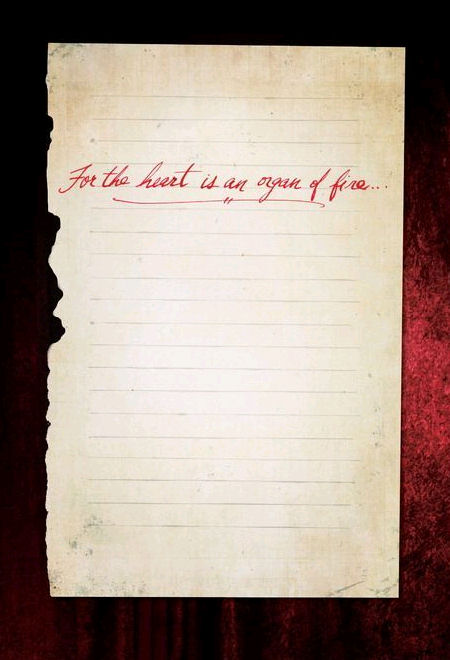 For the heart is an organ of fire...